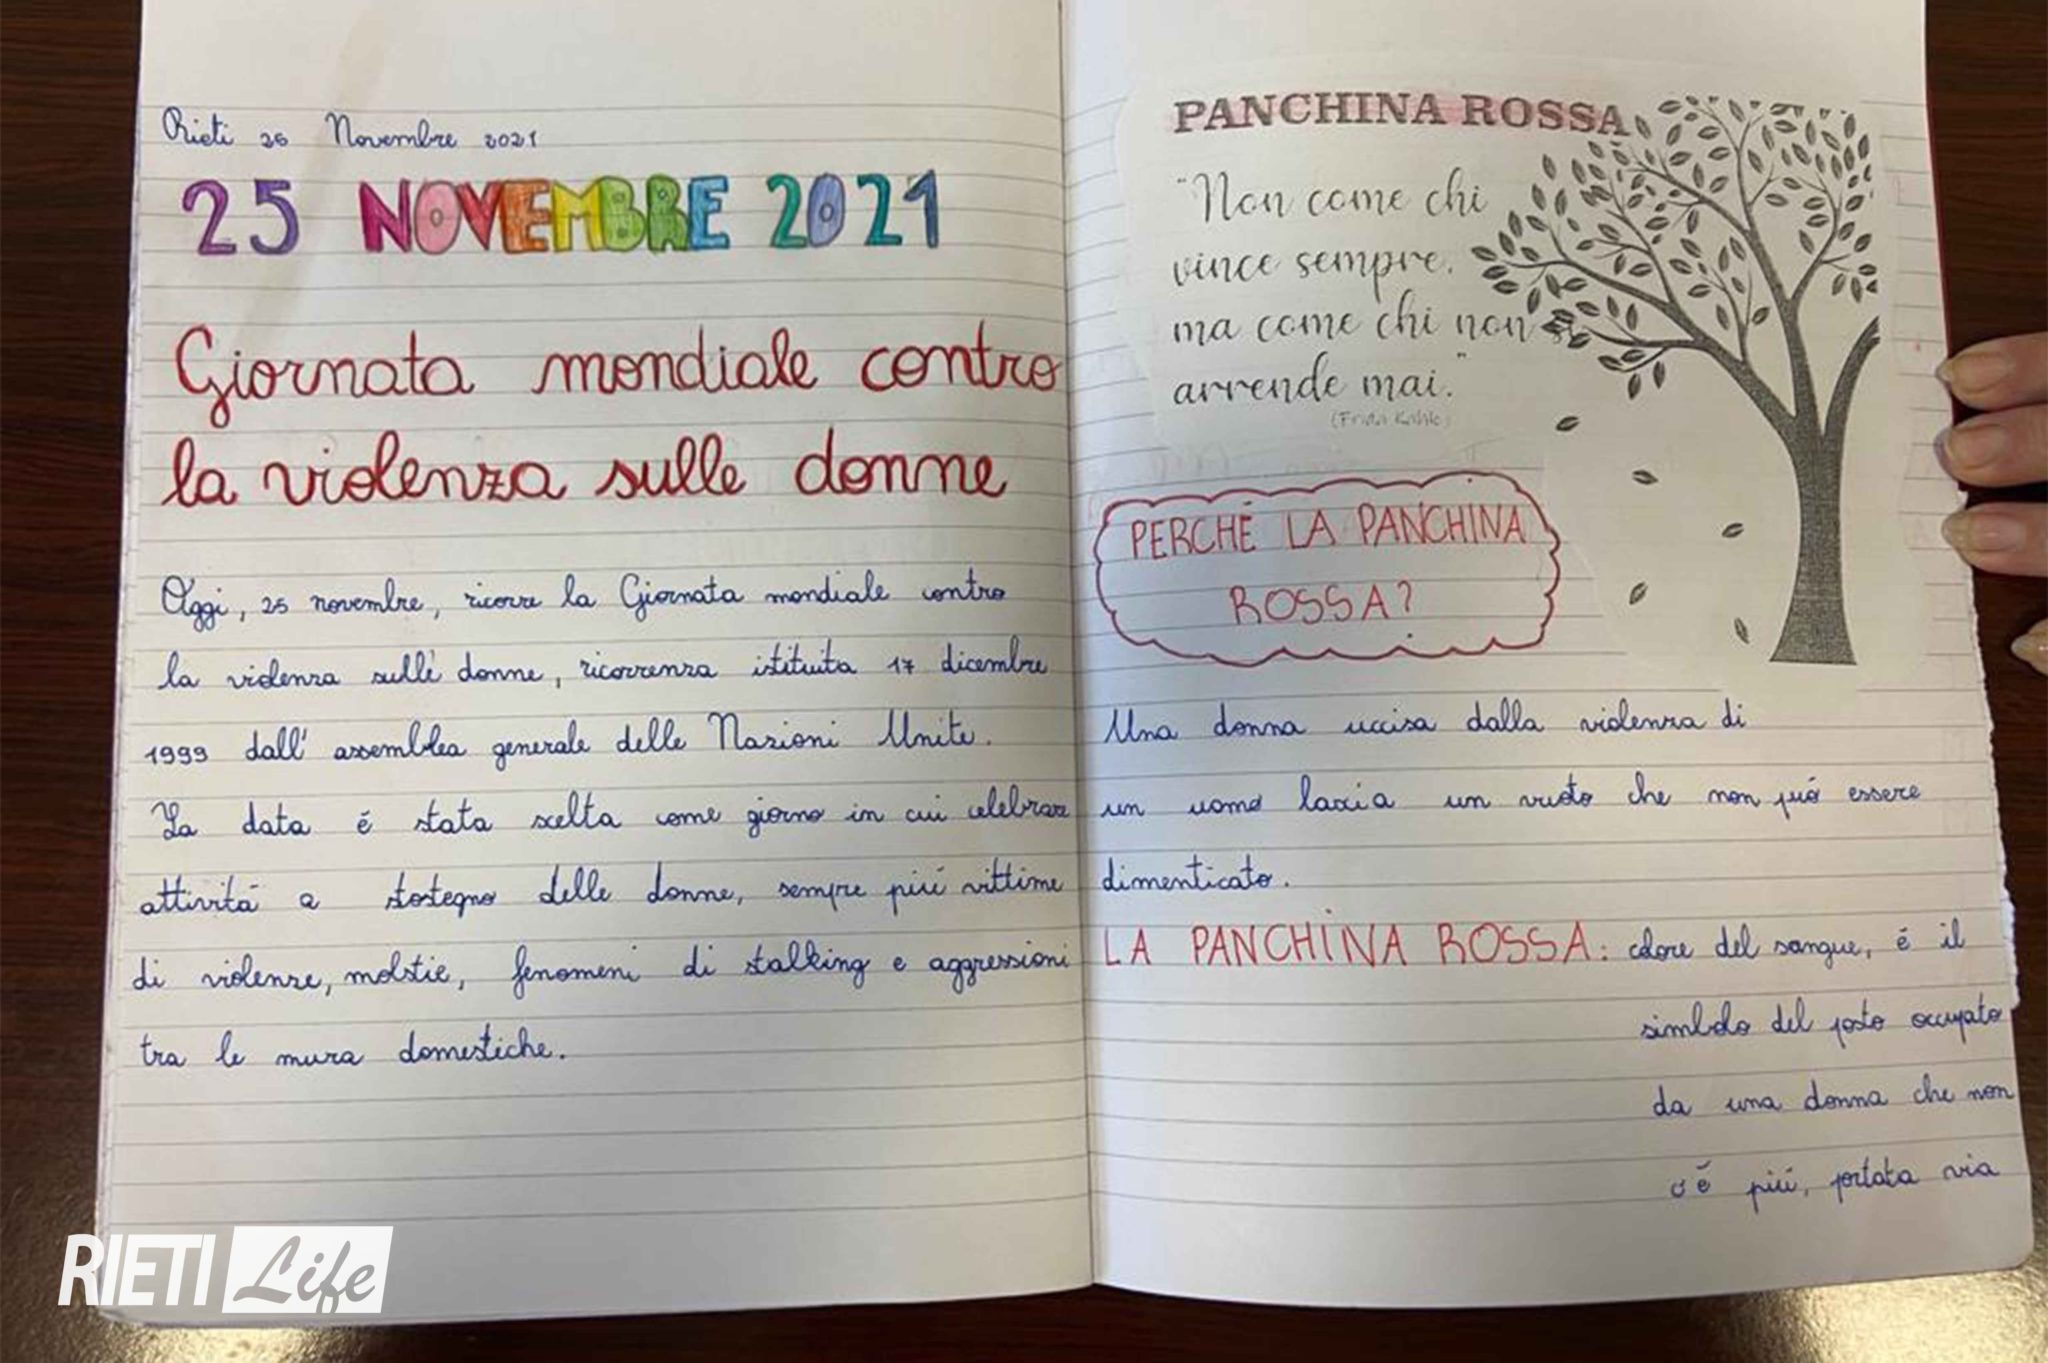 Rieti 25 Novembre 2021
25 NOVEMBRE 2021
Giornata mondiale contro
la violenza sulle donne
Oggi, 25 novembre, ricorre la Giornata mondiale contro
la violenza sulle donne, ricorrenza istituita 17 dicembre
1999 dall'assemblea generale delle Nazioni Unite.
La data é stata scelta come giorno in cui celebrare
attivitá a sostegno delle donne, sempre piú vittime
di violenze, molstie, fenomeni di stalking e aggressioni
tra le mura domestiche.
PANCHINA ROSSA
"Non come chi
vince sempre.
ma come chi non s
arrende mai."
(Frida Kahlo)
PERCHÉ LA PANCHINA
ROSSA?
Una donna uccisa dalla violenza di
un uomo lascia un vuoto che non puó essere
dimenticato.
LA PANCHINA ROSSA: colore del sangue, é il
simbolo del posto occupato
da una donna che non
c'é piú, portata via
RIETI Life